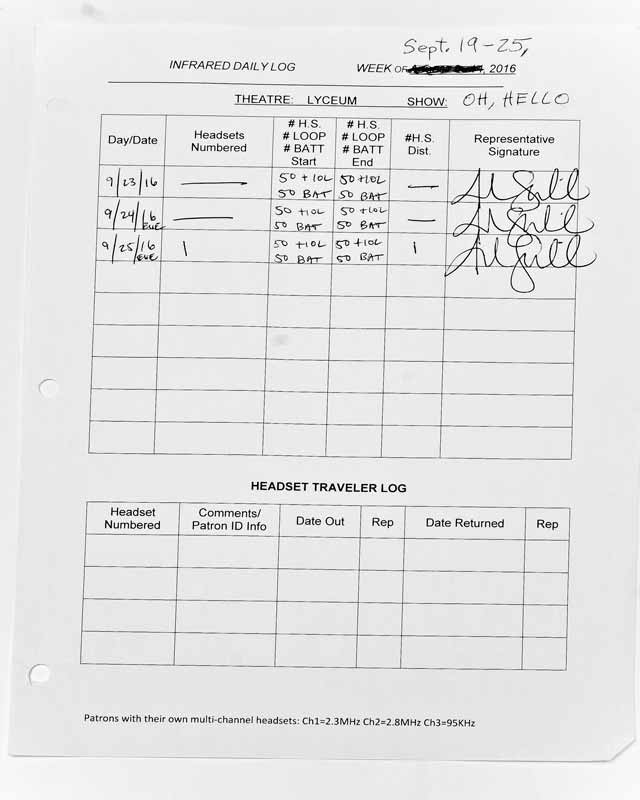 Sept. 19-25,
INFRARED DAILY LOG WEEK OF , 2016
THEATRE: LYCEUM SHOW: OH, HELLO
Day/Date Headsets Numbered # H.S. # LOOP # BATT Start # H.S. # LOOP # BATT End #H.S. Dist. Representative Signature
9/23/16 — 50 + 10L 50 BAT 50 + 10L 50 BAT —
9/24/16 EVE — 50 + 10L 50 BAT 50 + 10L 50 BAT —
9/25/16 EVE 1 50 + 10L 50 BAT 50 + 10L 50 BAT 1
HEADSET TRAVELER LOG
Headset Numbered Comments/ Patron ID Info Date Out Rep Date Returned Rep
Patrons with their own multi-channel headsets: Ch1=2.3MHz Ch2=2.8MHz Ch3=95KHz